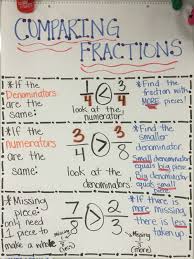 COMPARING
FRACTIONS
*If the
Denominators
are the
same:
1/4 < 3/4
look at the
numerator
*Find the
fraction with
MORE pieces!
*If the
numerators
are the
same:
3/4 > 3/8
look at the
denominators
*Find the
smaller
denominator
Small denominator
equals big piece
Big denominator
equals small
piece
*Missing
piece:
only need 1
piece to
make a whole
7/8 > 2/3
Missing
1/8
Missing
1/3
*If there is
more missing,
there is less
taken up